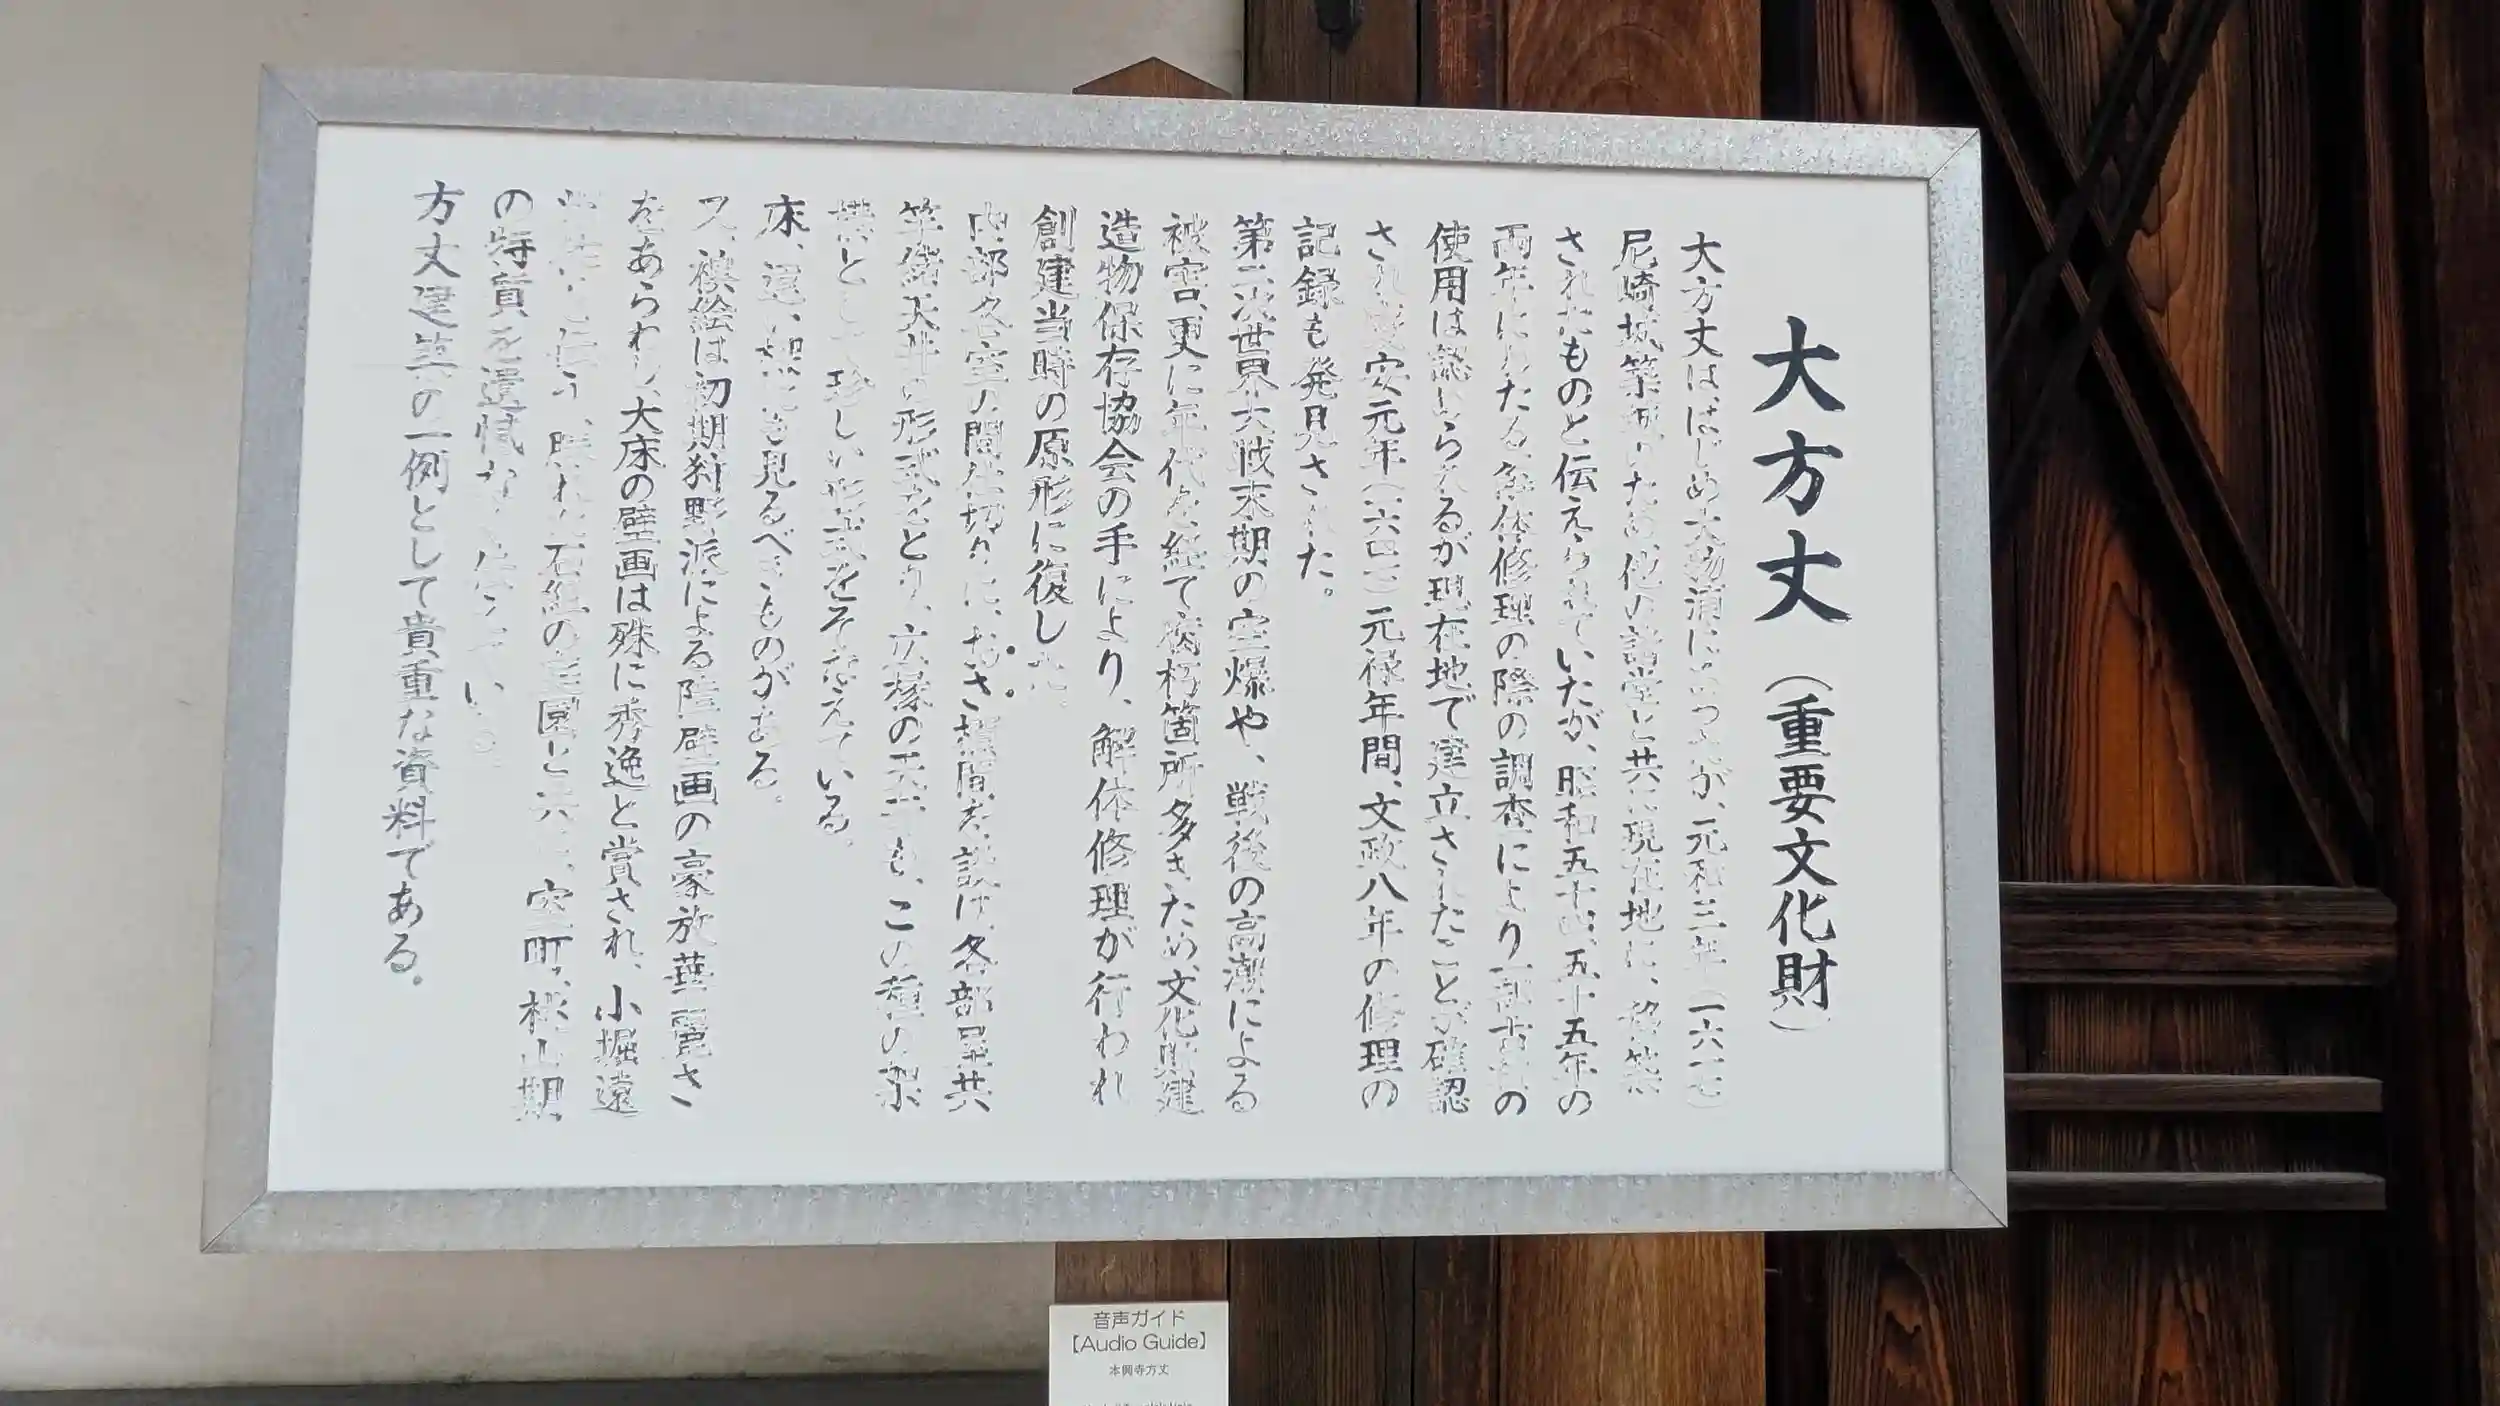 大方丈（重要文化財）
大方丈は、はじめ大物浦にあったが、元和三年（一六一七）
尼崎城築城のため、他の諸堂と共に現在地に、移築
されたものと伝えられていたが、昭和五十四、五十五年の
両年にわたる解体修理の際の調査により一部古材の
使用は認められるが現在地で建立されたことが確認
され慶安元年（一六四八）元禄年間、文政八年の修理の
記録も発見された。
第二次世界大戦末期の空爆や、戦後の高潮による
被害、更に年代を経て腐朽箇所多きため、文化財建
造物保存協会の手により、解体修理が行われ
創建当時の原形に復した。
内部各室の間仕切りに、おさ欄間を設け、各部屋共
竿縁天井の形式をとり、広縁の天井も、この種の架
構としては珍しい形式をそなえている。
床、違い棚にも見るべきものがある。
又、襖絵は初期狩野派による障壁画の豪放華麗さ
をあらわし、大床の壁画は殊に秀逸と賞され、小堀遠
伝う、勝れた石組の庭園と共に、室町、桃山期
の特質を遺憾なく伝えている
方丈建築の一例として貴重な資料である。
音声ガイド
【Audio Guide】
本興寺方丈